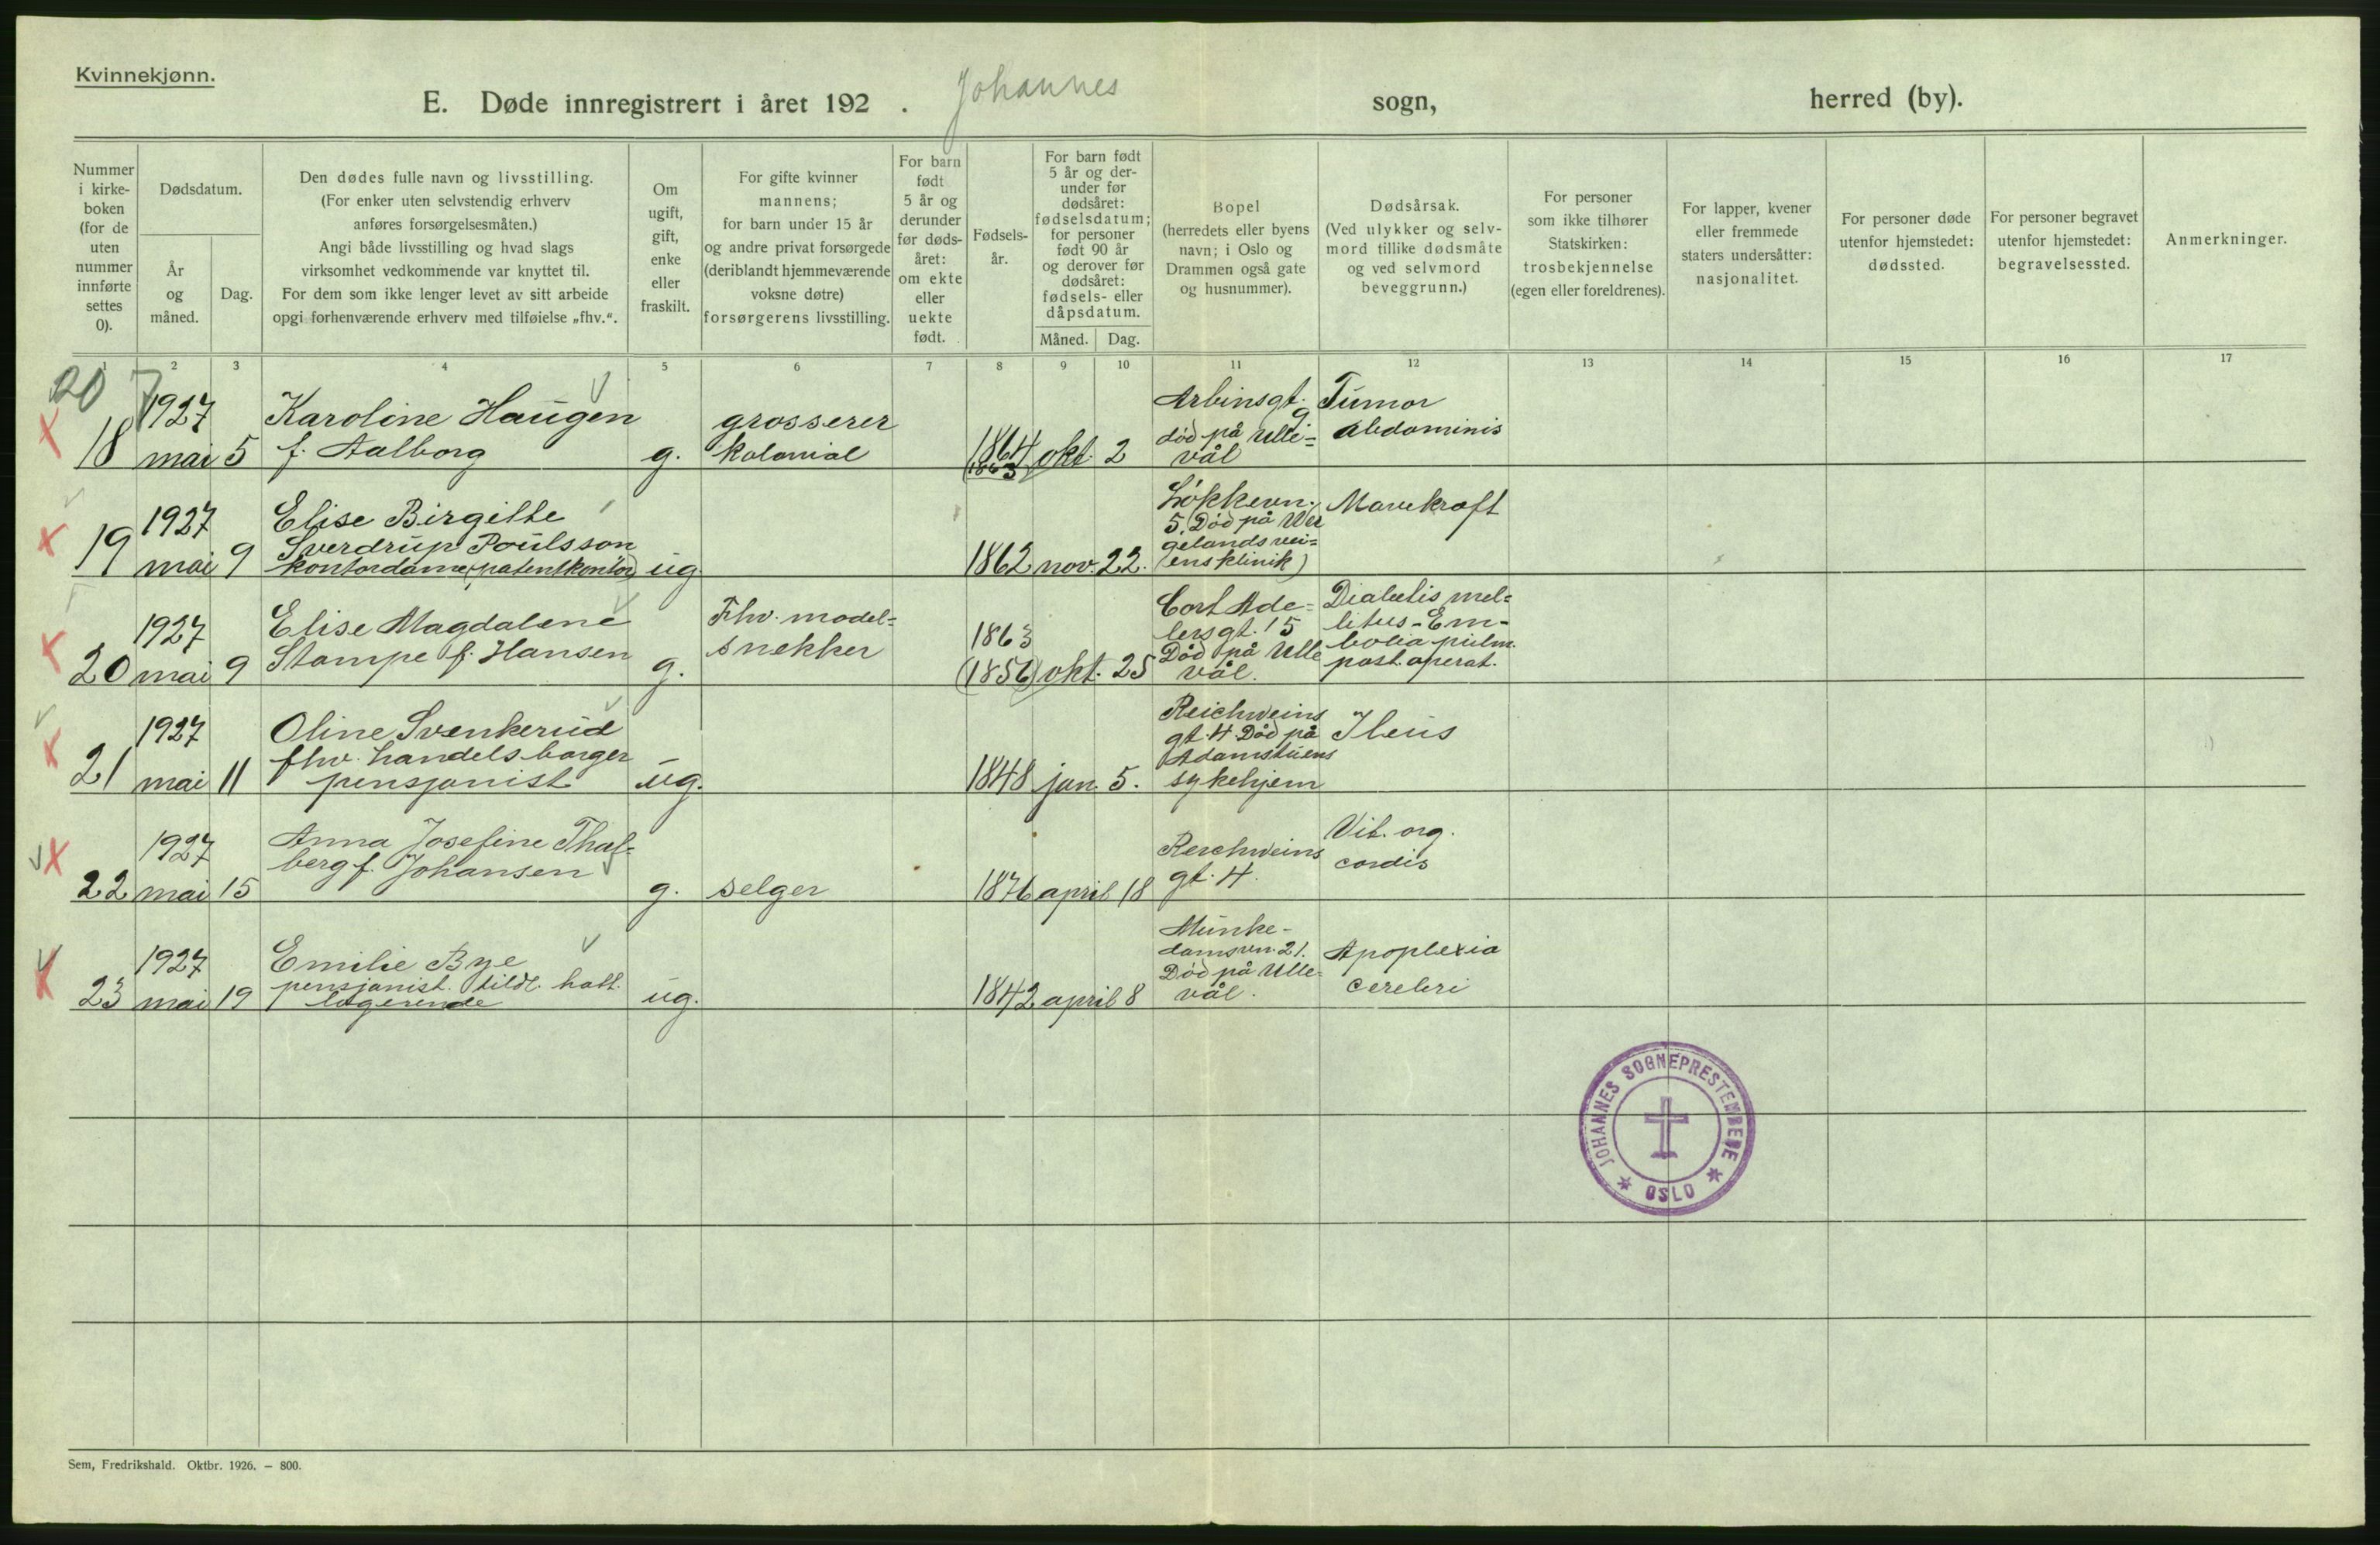 Kvinnekjønn.
E. Døde innregistrert i året 192 . Johannes sogn, herred (by).
Nummer
i kirke-
boken
(for de
uten
nummer
innførte
settes
0).
Dødsdatum.
År
og
måned.
Dag.
Den dødes fulle navn og livsstilling.
(For enker uten selvstendig erhverv
anføres forsørgelsesmåten.)
Angi både livsstilling og hvad slags
virksomhet vedkommende var knyttet til.
For dem som ikke lenger levet av sitt arbeide
opgi forhenværende erhverv med tilføielse „fhv.“.
Om
ugift,
gift,
enke
eller
fraskilt.
For gifte kvinner
mannens;
for barn under 15 år
og andre privat forsørgede
(deriblandt hjemmeværende
voksne døtre)
forsørgerens livsstilling.
For barn
født
5 år og
derunder
før døds-
året:
om ekte
eller
uekte
født.
Fødsels-
år.
For barn født
5 år og der-
under før
dødsåret:
fødselsdatum;
for personer
født 90 år
og derover før
dødsåret:
fødsels- eller
dåpsdatum.
Måned. Dag.
Bopel
(herredets eller byens
navn; i Oslo og
Drammen også gate
og husnummer).
Dødsårsak.
(Ved ulykker og selv-
mord tillike dødsmåte
og ved selvmord
beveggrunn.)
For personer
som ikke tilhører
Statskirken:
trosbekjennelse
(egen eller foreldrenes).
For lapper, kvener
eller fremmede
staters undersåtter:
nasjonalitet.
For personer døde
utenfor hjemstedet:
dødssted.
For personer begravet
utenfor hjemstedet:
begravelsessted.
Anmerkninger.
1 2 3 4 5 6 7 8 9 10 11 12 13 14 15 16 17
20 7
18
1927
mai 5
Karoline Haugen
f. Aalborg
g.
grosserer
kolonial
1864
(1863)
okt. 2
Arbinsgt.
9
død på Ulle=
vål
Tumor
abdominis
19
1927
mai 9
Elise Birgitte
Sverdrup Poulsson
kontordame (patentkontor)
ug.
1862 nov. 22.
Løkkevn.
5. Død på Wer
gelandsvei=
ens klinik)
Mavekræft
20
1927
mai 9
Elise Magdalene
Stampe f. Hansen
g.
Fhv. model=
snekker
1863
(1856) okt. 25
Cort Ade=
lersgt. 15
Død på Ulle
vål.
Diabetis mel=
litus - Em-
bolia pulm.
post. operat.
21
1927
mai 11
Oline Svenkerud
fhv. handelsborger
pensjonist
ug.
1848 jan. 5.
Reichweins
gt. 4 Død på
Adamstuens
sykehjem
Ileus
22
1927
mai 15
Anna Josefine Thal=
berg f. Johansen
g. selger
1876 april 18
Reichweins
gt. 4.
Vit. org.
cordis
23
1927
mai 19
Emilie Bye
pensjonist. tidl. hatt
ug.
1842 april 8
Munke-
damsvn. 21.
Død på Ulle-
vål.
Apoplexia
cerebri
JOHANNES SOGNEPRESTEMBEDE
OSLO
Sem, Fredrikshald. Oktbr. 1926. – 800.